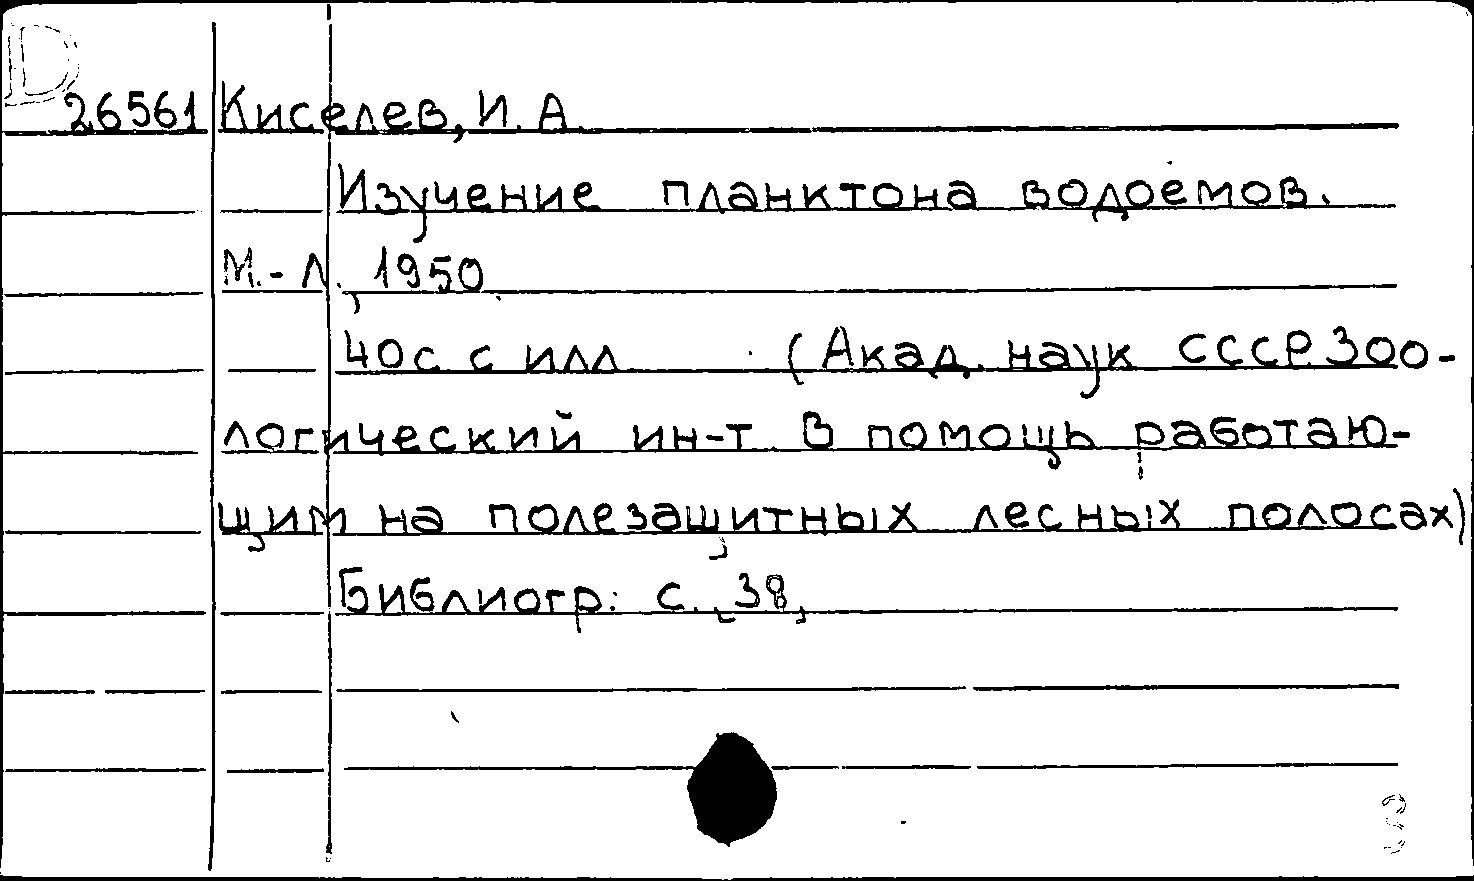 D
26561 Киселев, И. А.
Изучение планктона водоемов.
М.-Л., 1950.
40с с илл. (Акад. наук СССР. Зоо-
логический ин-т. В помощь работаю-
щим на полезащитных лесных полосах)
Библиогр: с. 38,